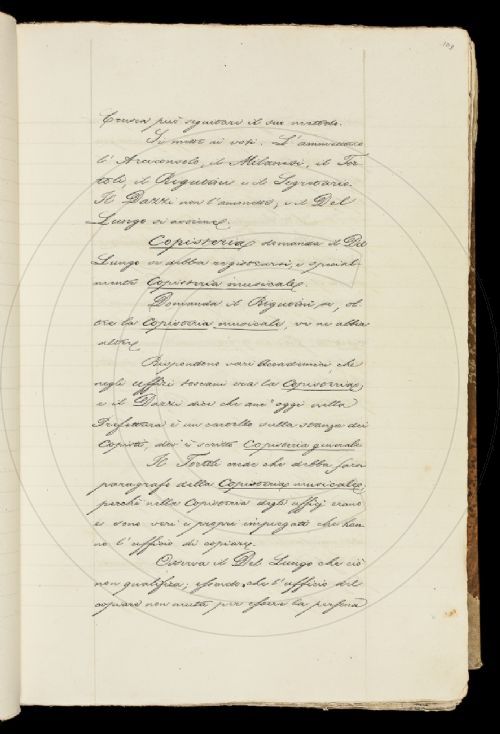 109
Crusca può seguitare il suo metodo.
Si mette ai voti. L'ammettono
l'Arciconsolo, il Milanesi, il Tor-
toli, il Rigutini e il Segretario.
Il Dazzi non l'ammette, e il Del
Lungo si astiene.
Copisteria domanda il Del
Lungo se debba registrarsi, e special-
mente Copisteria musicale.
Domanda il Rigutini se, ol-
tre la Copisteria musicale, ve ne abbia
altre.
Rispondono vari Accademici, che
negli uffizi toscani era la Copisteria;
e il Dazzi dice che anc'oggi nella
Prefettura è un cartello sulla stanza dei
Copisti, dov'è scritto Copisteria generale
Il Tortoli crede che debba farsi
paragrafo della Copisteria musicale,
perchè nella Copisteria degli uffizj erano
e sono veri e proprii impiegati che han-
no l'uffizio di copiare.
Osserva il Del Lungo che ciò
non qualifica; essendo che l'uffizio del
copiare non muta per essere la persona